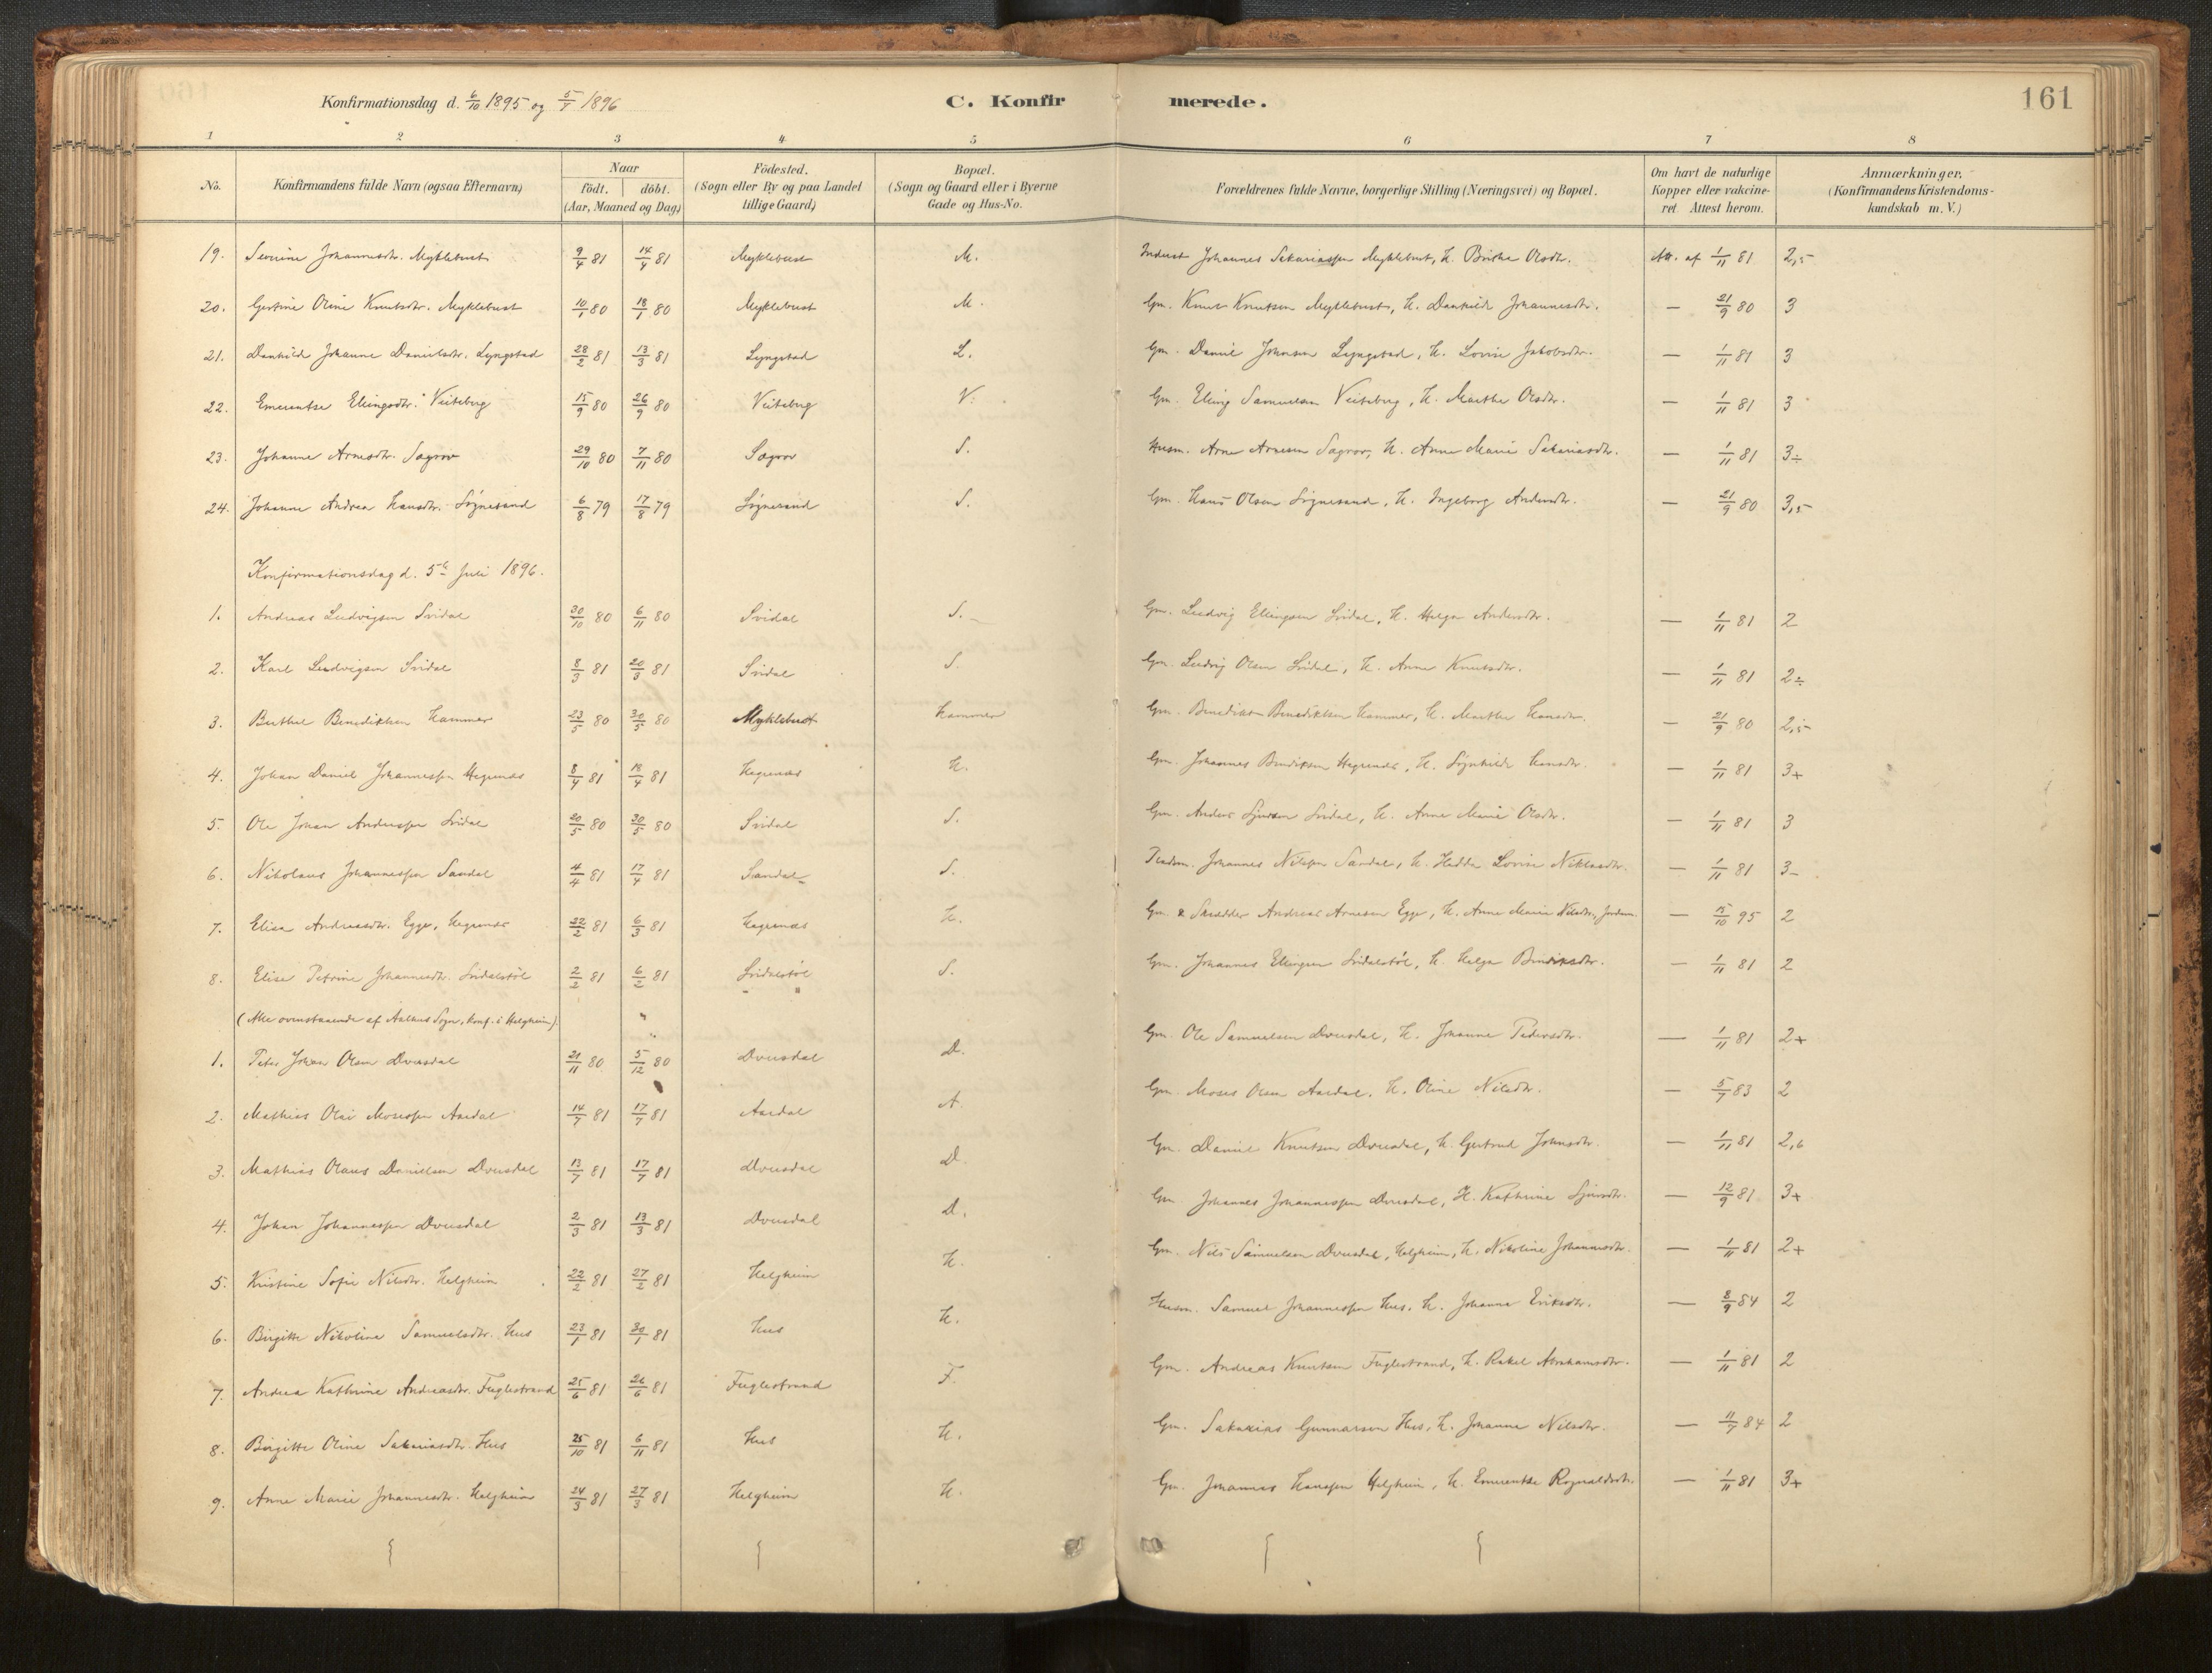 Konfirmationsdag d. 6/10 1895 og 5/7 1896 C. Konfirmerede. 161
1 2 3 4 5 6 7 8
No. Konfirmandens fulde Navn (ogsaa Efternavn) Naar födt. döbt. (Aar, Maaned og Dag) Födested. (Sogn eller By og paa Landet tillige Gaard) Bopæl. (Sogn og Gaard eller i Byerne Gade og Hus-No. Forældrenes fulde Navne, borgerlige Stilling (Næringsvei) og Bopæl. Om havt de naturlige Kopper eller vakcineret. Attest herom. Anmærkninger. (Konfirmandens Kristendomskundskab m. V.)
19. Severine Johannesdtr. Myklebust 9/4 81 14/4 81 Myklebust M. Inderst Johannes Sakariassen Myklebust, H. Olsdtr. Att. af 1/11 81 2,5
20. Gertine Oline Knutsdtr. Myklebust 10/1 80 18/1 80 Myklebust M. Gm. Knut Knutsen Myklebust, H. Dankilde Johannesdtr. — 21/9 80 3
21. Dankilde Johanne Danielsdtr. Lyngstad 28/2 81 13/3 81 Lyngstad L. Gm. Daniel Johnsen Lyngstad, H. Lovise Jakobsdtr. — 1/11 81 3
22. Emerentse Ellingsdtr. Veiteberg 15/9 80 26/9 80 Veiteberg V. Gm. Elling Samuelsen Veiteberg, H. Marthe Olsdtr. — 1/11 81 3
23. Johanne Arnesdtr. Sægrov 29/10 80 7/11 80 Sægrov S. Husm. Arne Arnesen Sægrov, H. Anne Marie Sakariasdtr. — 1/11 81 3÷
24. Johanne Andrea Hansdtr. Sögnesand 6/8 79 17/8 79 Sögnesand S. Gm. Hans Olsen Sögnesand, H. Ingeborg Andersdtr. — 21/9 80 3,5
Konfirmationsdag d. 5te Juli 1896.
1. Andreas Ludvigsen Svidal 30/10 80 6/11 80 Svidal S. Gm. Ludvig Ellingsen Svidal, H. Helga Andersdtr. — 1/11 81 2
2. Karl Ludvigsen Svidal 8/3 81 20/3 81 Svidal S. Gm. Ludvig Olsen Svidal, H. Anne Knutsdtr. — 1/11 81 2÷
3. Berthel Benediktsen Hammer 23/5 80 30/5 80 Myklebust Hammer Gm. Benedikt Benediktsen Hammer, H. Marthe Hansdtr. — 21/9 80 2,5
4. Johan Daniel Johannessen Hegrenæs 8/4 81 18/4 81 Hegrenæs H. Gm. Johannes Bendiksen Hegrenæs, H. Sögnhilde Hansdtr. — 1/11 81 3+
5. Ole Johan Anderssen Svidal 20/5 80 30/5 80 Svidal S. Gm. Anders Sjursen Svidal, H. Anne Marie Olsdtr. — 1/11 81 3
6. Nikolaus Johannessen Sandal 4/4 81 17/4 81 Sandal S. Johannes Nilssen Sandal, H. Hedda Lovise Niklasdtr. — 1/11 81 3-
7. Elisa Andreasdtr. Egge, Hegrenæs 22/2 81 6/3 81 Hegrenæs H. Gm. & Skrædder Andreas Arnesen Egge, H. Anne Marie Nilsdtr., Jordem. — 15/10 95 2
8. Elise Petrine Johannesdtr. Svidalstöl 2/2 81 6/2 81 Svidalstöl S. Gm. Johannes Ellingsen Svidalstöl, H. Helga Bendiksdtr. — 1/11 81 2
(Alle ovenstaaende af Aalhus Sogn, konf. i Helgheim).
1. Peter Johan Olsen Dvergsdal 21/11 80 5/12 80 Dvergsdal D. Gm. Ole Samuelsen Dvergsdal, H. Johanne Pedersdtr. — 1/11 81 2+
2. Mathias Olai Mosessen Aardal 14/7 81 17/7 81 Aardal A. Gm. Moses Olsen Aardal, H. Oline Nilsdtr. — 5/7 83 2
3. Mathias Olaus Danielsen Dvergsdal 13/7 81 17/7 81 Dvergsdal D. Gm. Daniel Knutsen Dvergsdal, H. Gertrud Johnsdtr. — 1/11 81 2,6
4. Johan Johannessen Dvergsdal 2/3 81 13/3 81 Dvergsdal D. Gm. Johannes Johannessen Dvergsdal, H. Kathrine Sjursdtr. — 12/9 81 3+
5. Kristine Sofie Nilsdtr. Helgheim 22/2 81 27/2 81 Helgheim H. Gm. Nils Samuelsen Dvergsdal, Helgheim, H. Nikoline Johannesdtr. — 1/11 81 2+
6. Birgitte Nikoline Samuelsdtr. Hus 23/1 81 30/1 81 Hus H. Husm. Samuel Johannessen Hus, H. Johanne Eriksdtr. — 8/9 84 2
7. Andrea Kathrine Andreasdtr. Fuglestrand 25/6 81 26/6 81 Fuglestrand F. Gm. Andreas Knutsen Fuglestrand, H. Rakel Abrahamsdtr. — 1/11 81 2
8. Birgitte Oline Sakariasdtr. Hus 25/10 81 6/11 81 Hus H. Gm. Sakarias Gunnarson Hus, H. Johanne Nilsdtr. — 11/7 84 2
9. Anne Marie Johannesdtr. Helgheim 24/3 81 27/3 81 Helgheim H. Gm. Johannes Hanssen Helgheim, H. Emerentse Rognaldsdtr. — 1/11 81 3+